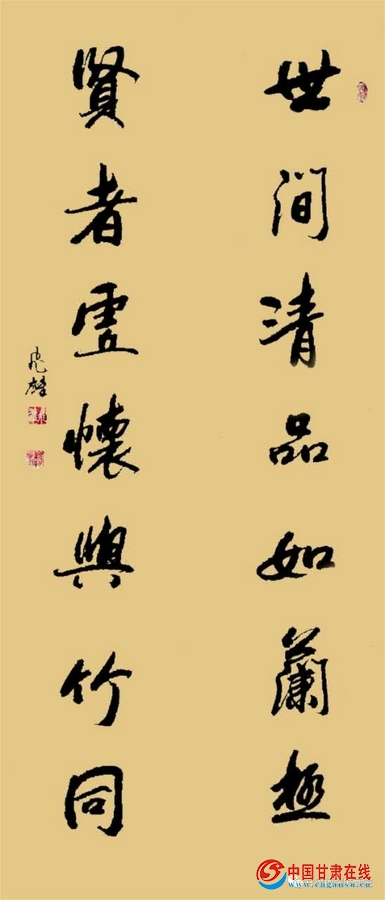 世間清品如蘭極
賢者虛懷與竹同
中国甘肃在线
www.cngansu.cn